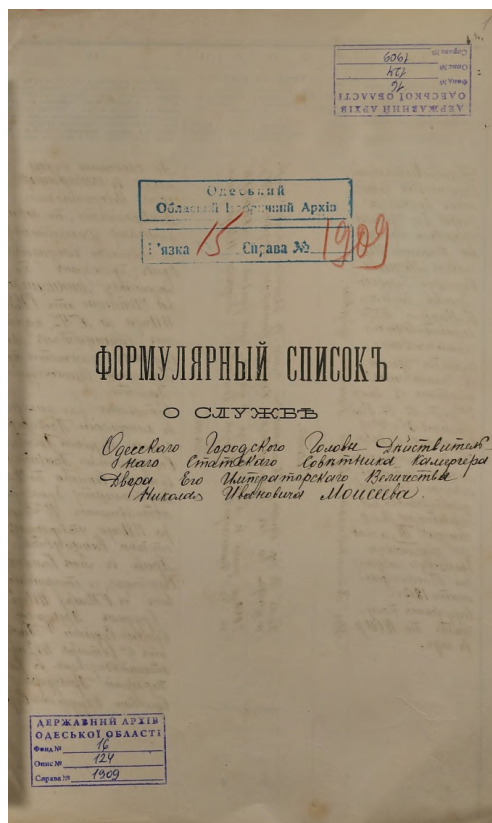 ДЕРЖАВНИЙ АРХІВ
ОДЕСЬКОЇ ОБЛАСТІ
Фонд № 16
Опис № 124
Справа № 1909
Одеський
Обласний Історичний Архів
В'язка 15 Справа № 1909
ФОРМУЛЯРНЫЙ СПИСОКЪ
О СЛУЖБѢ
Одесскаго Городского Головы Дѣйствитель-
наго Статскаго Совѣтника Камергера
Двора Его Императорскаго Величества
Николая Ивановича Моисеева.
ДЕРЖАВНИЙ АРХІВ
ОДЕСЬКОЇ ОБЛАСТІ
Фонд № 16
Опис № 124
Справа № 1909